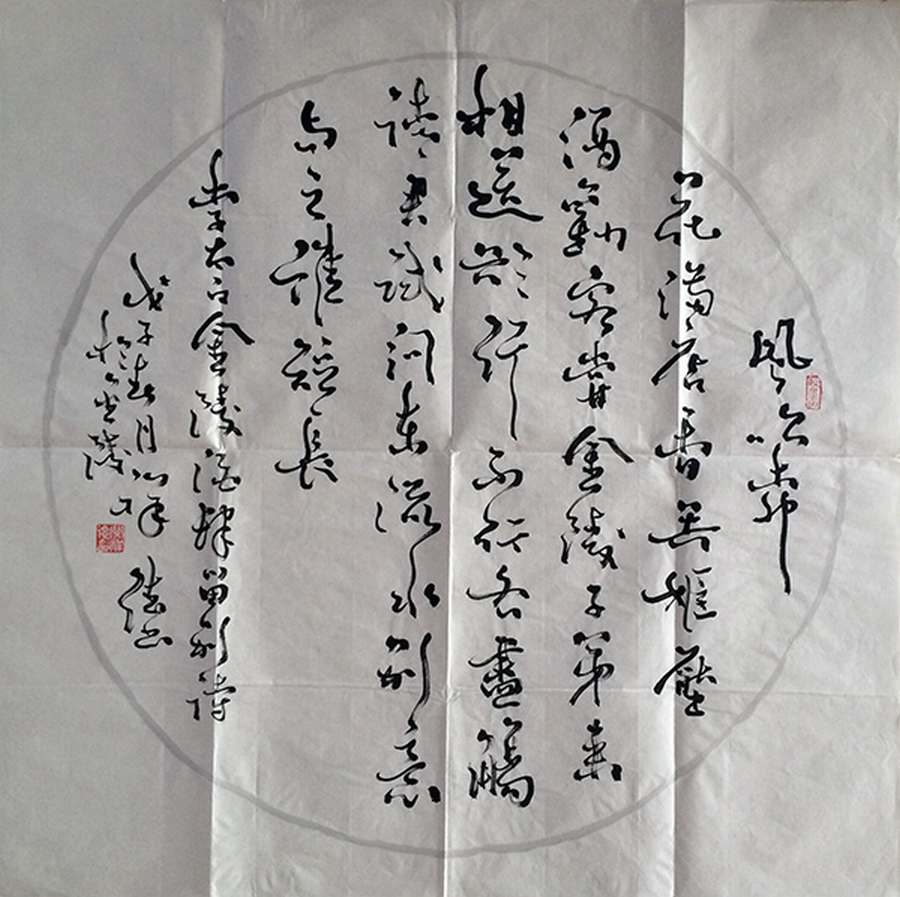 風吹柳
花滿店香吳姬壓
酒勸客嘗金陵子弟來
相送欲行不行各盡觴
請君試問東流水別意
与之誰短長
李太白金陵酒肆留別詩
戊子春月
於金陵